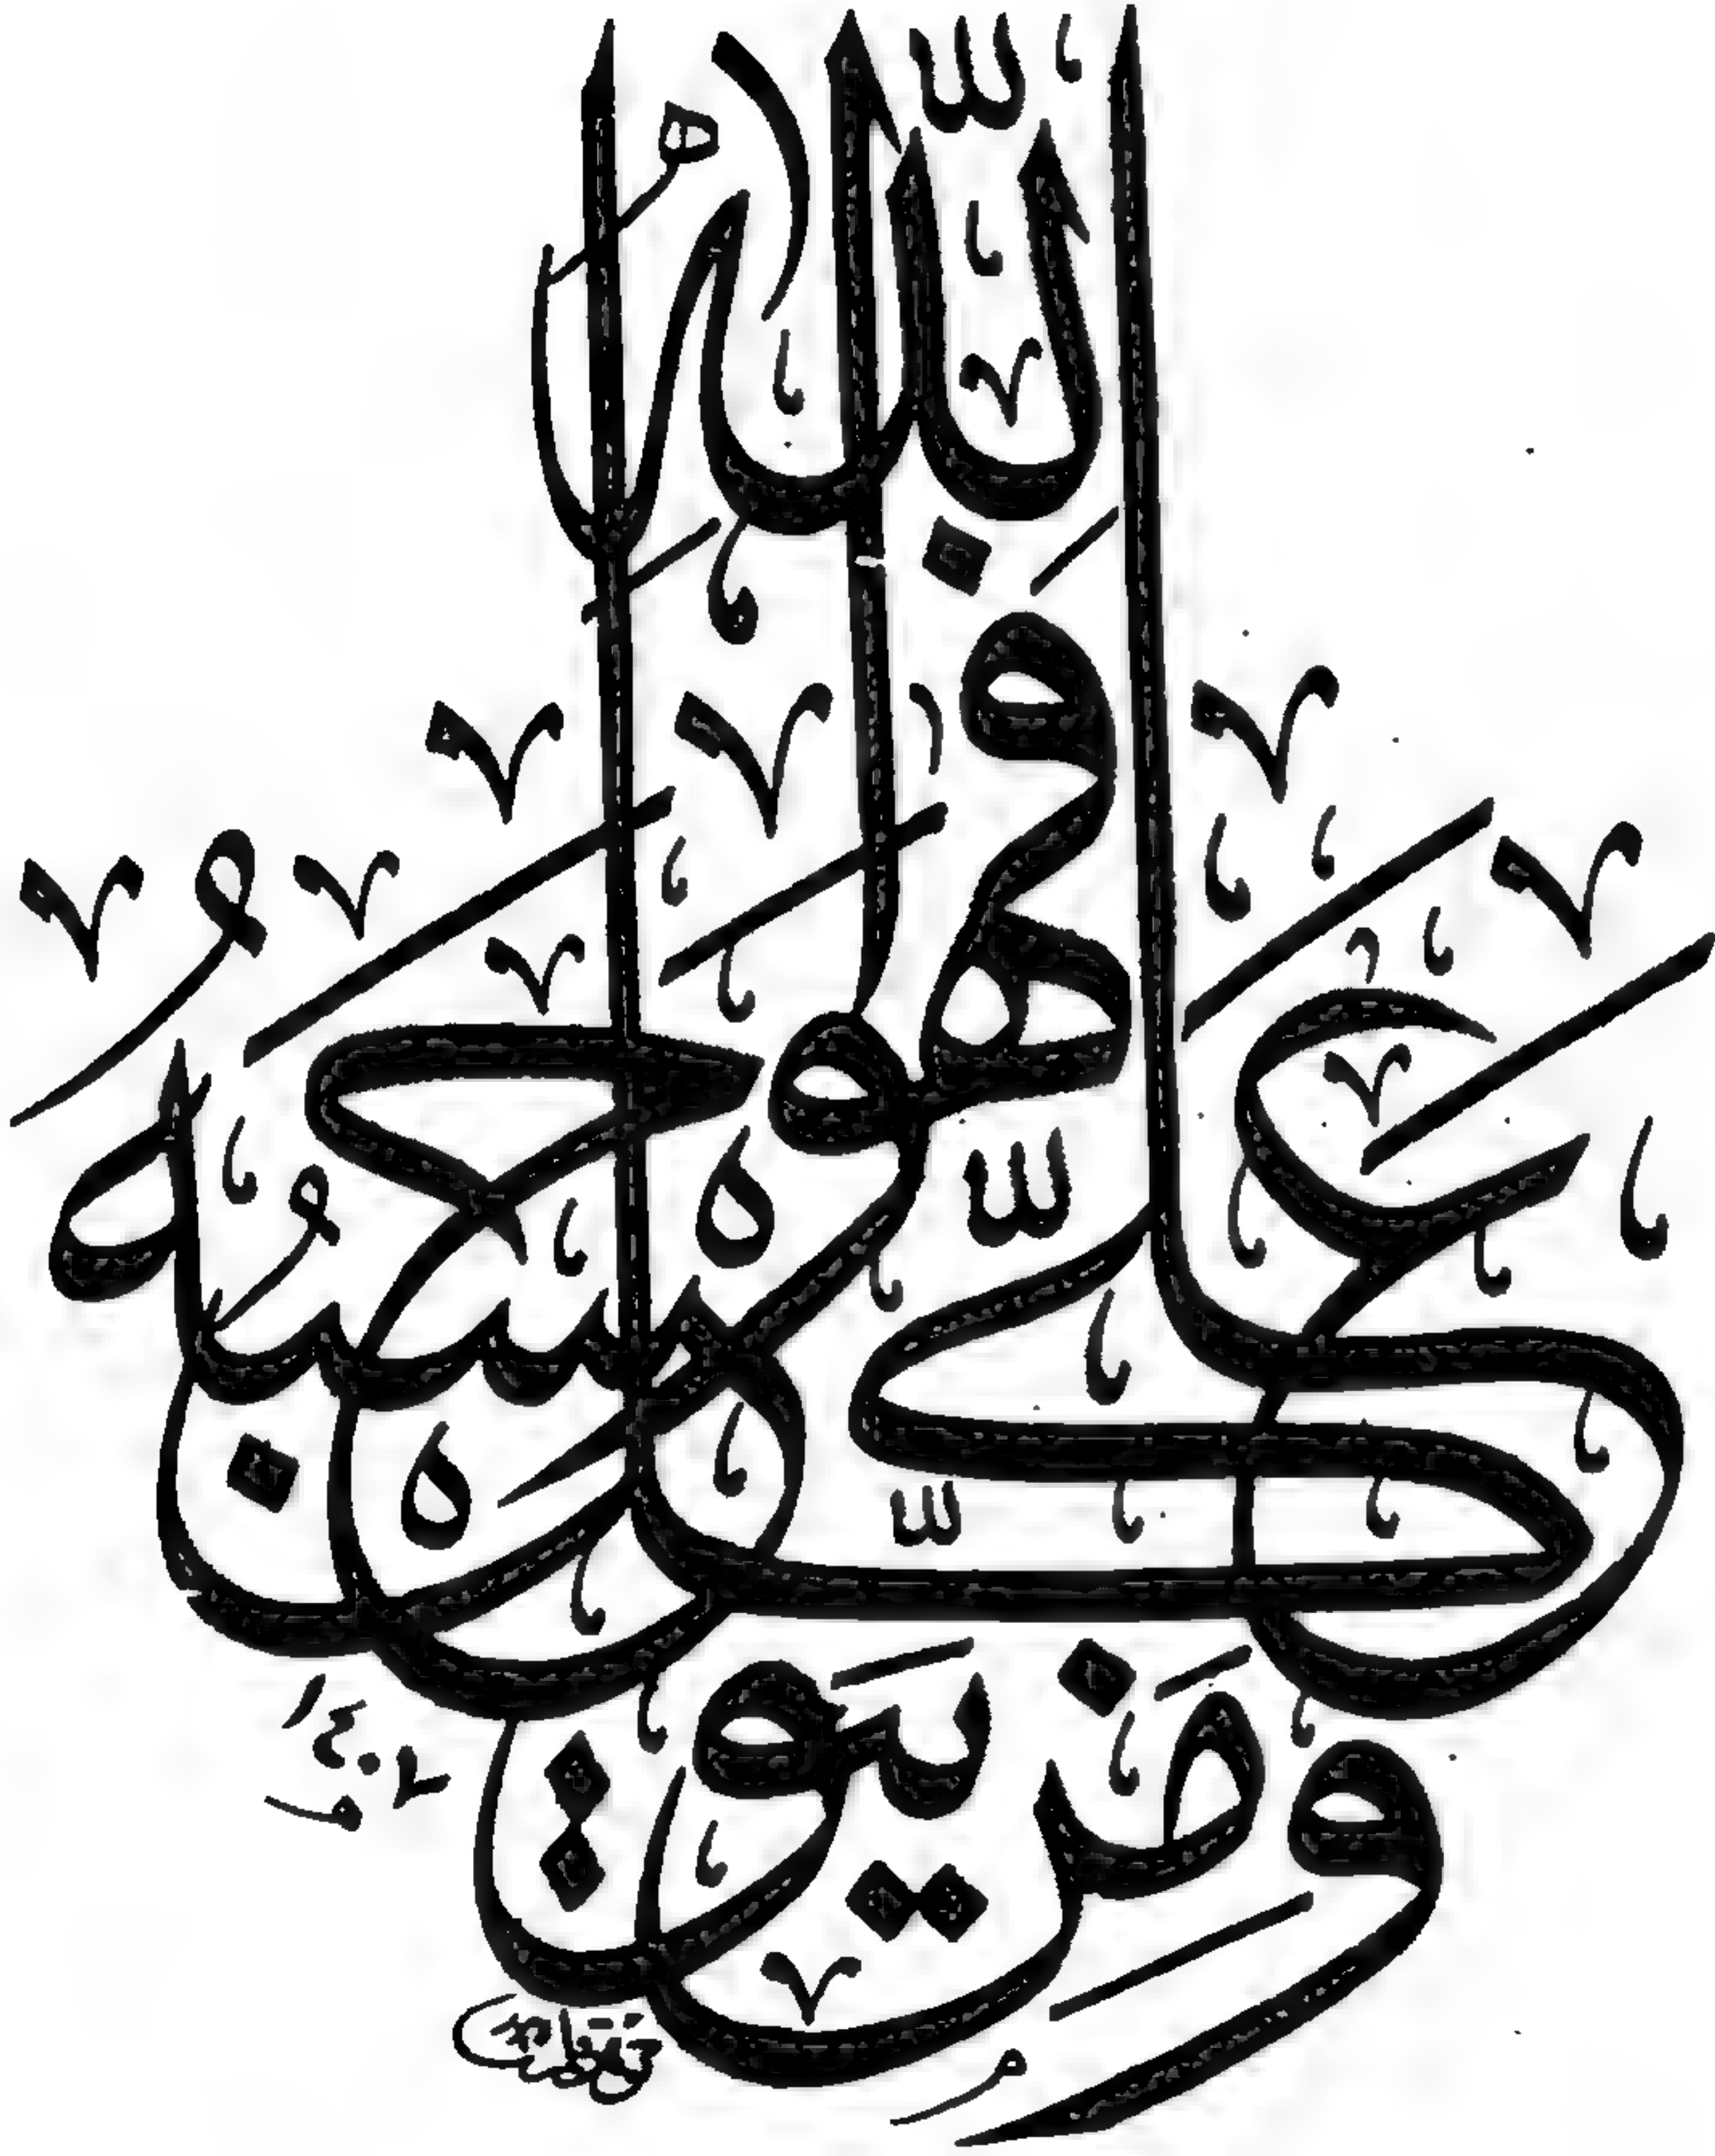 وَمَنْ يَتَوَكَّلْ عَلَى اللهِ فَهُوَ حَسْبُهُ
١٤٠٢